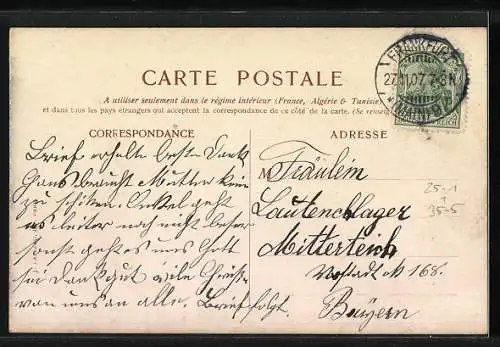 CARTE POSTALE
A utiliser seulement dans le régime intérieur (France, Algérie & Tunisie)
et dans tous les pays étrangers qui acceptent la correspondance de ce côté de la carte. (Se renseigner
CORRESPONDANCE
Brief erhalte besten Dank
Gans braucht Mutter kein
zu schicken. Onkel geht
es leider noch nicht besser
sonst geht es uns Gott
sei Dank gut viele Grüße
von uns an alle. Brief folgt.
FRANKFURT
27.11.07. 7-8 N
(MAIN)
ADRESSE
M Fräulein
Lautenschlager
Mitterteich
Vorstadt № 168.
Bayern
25-1
35-5